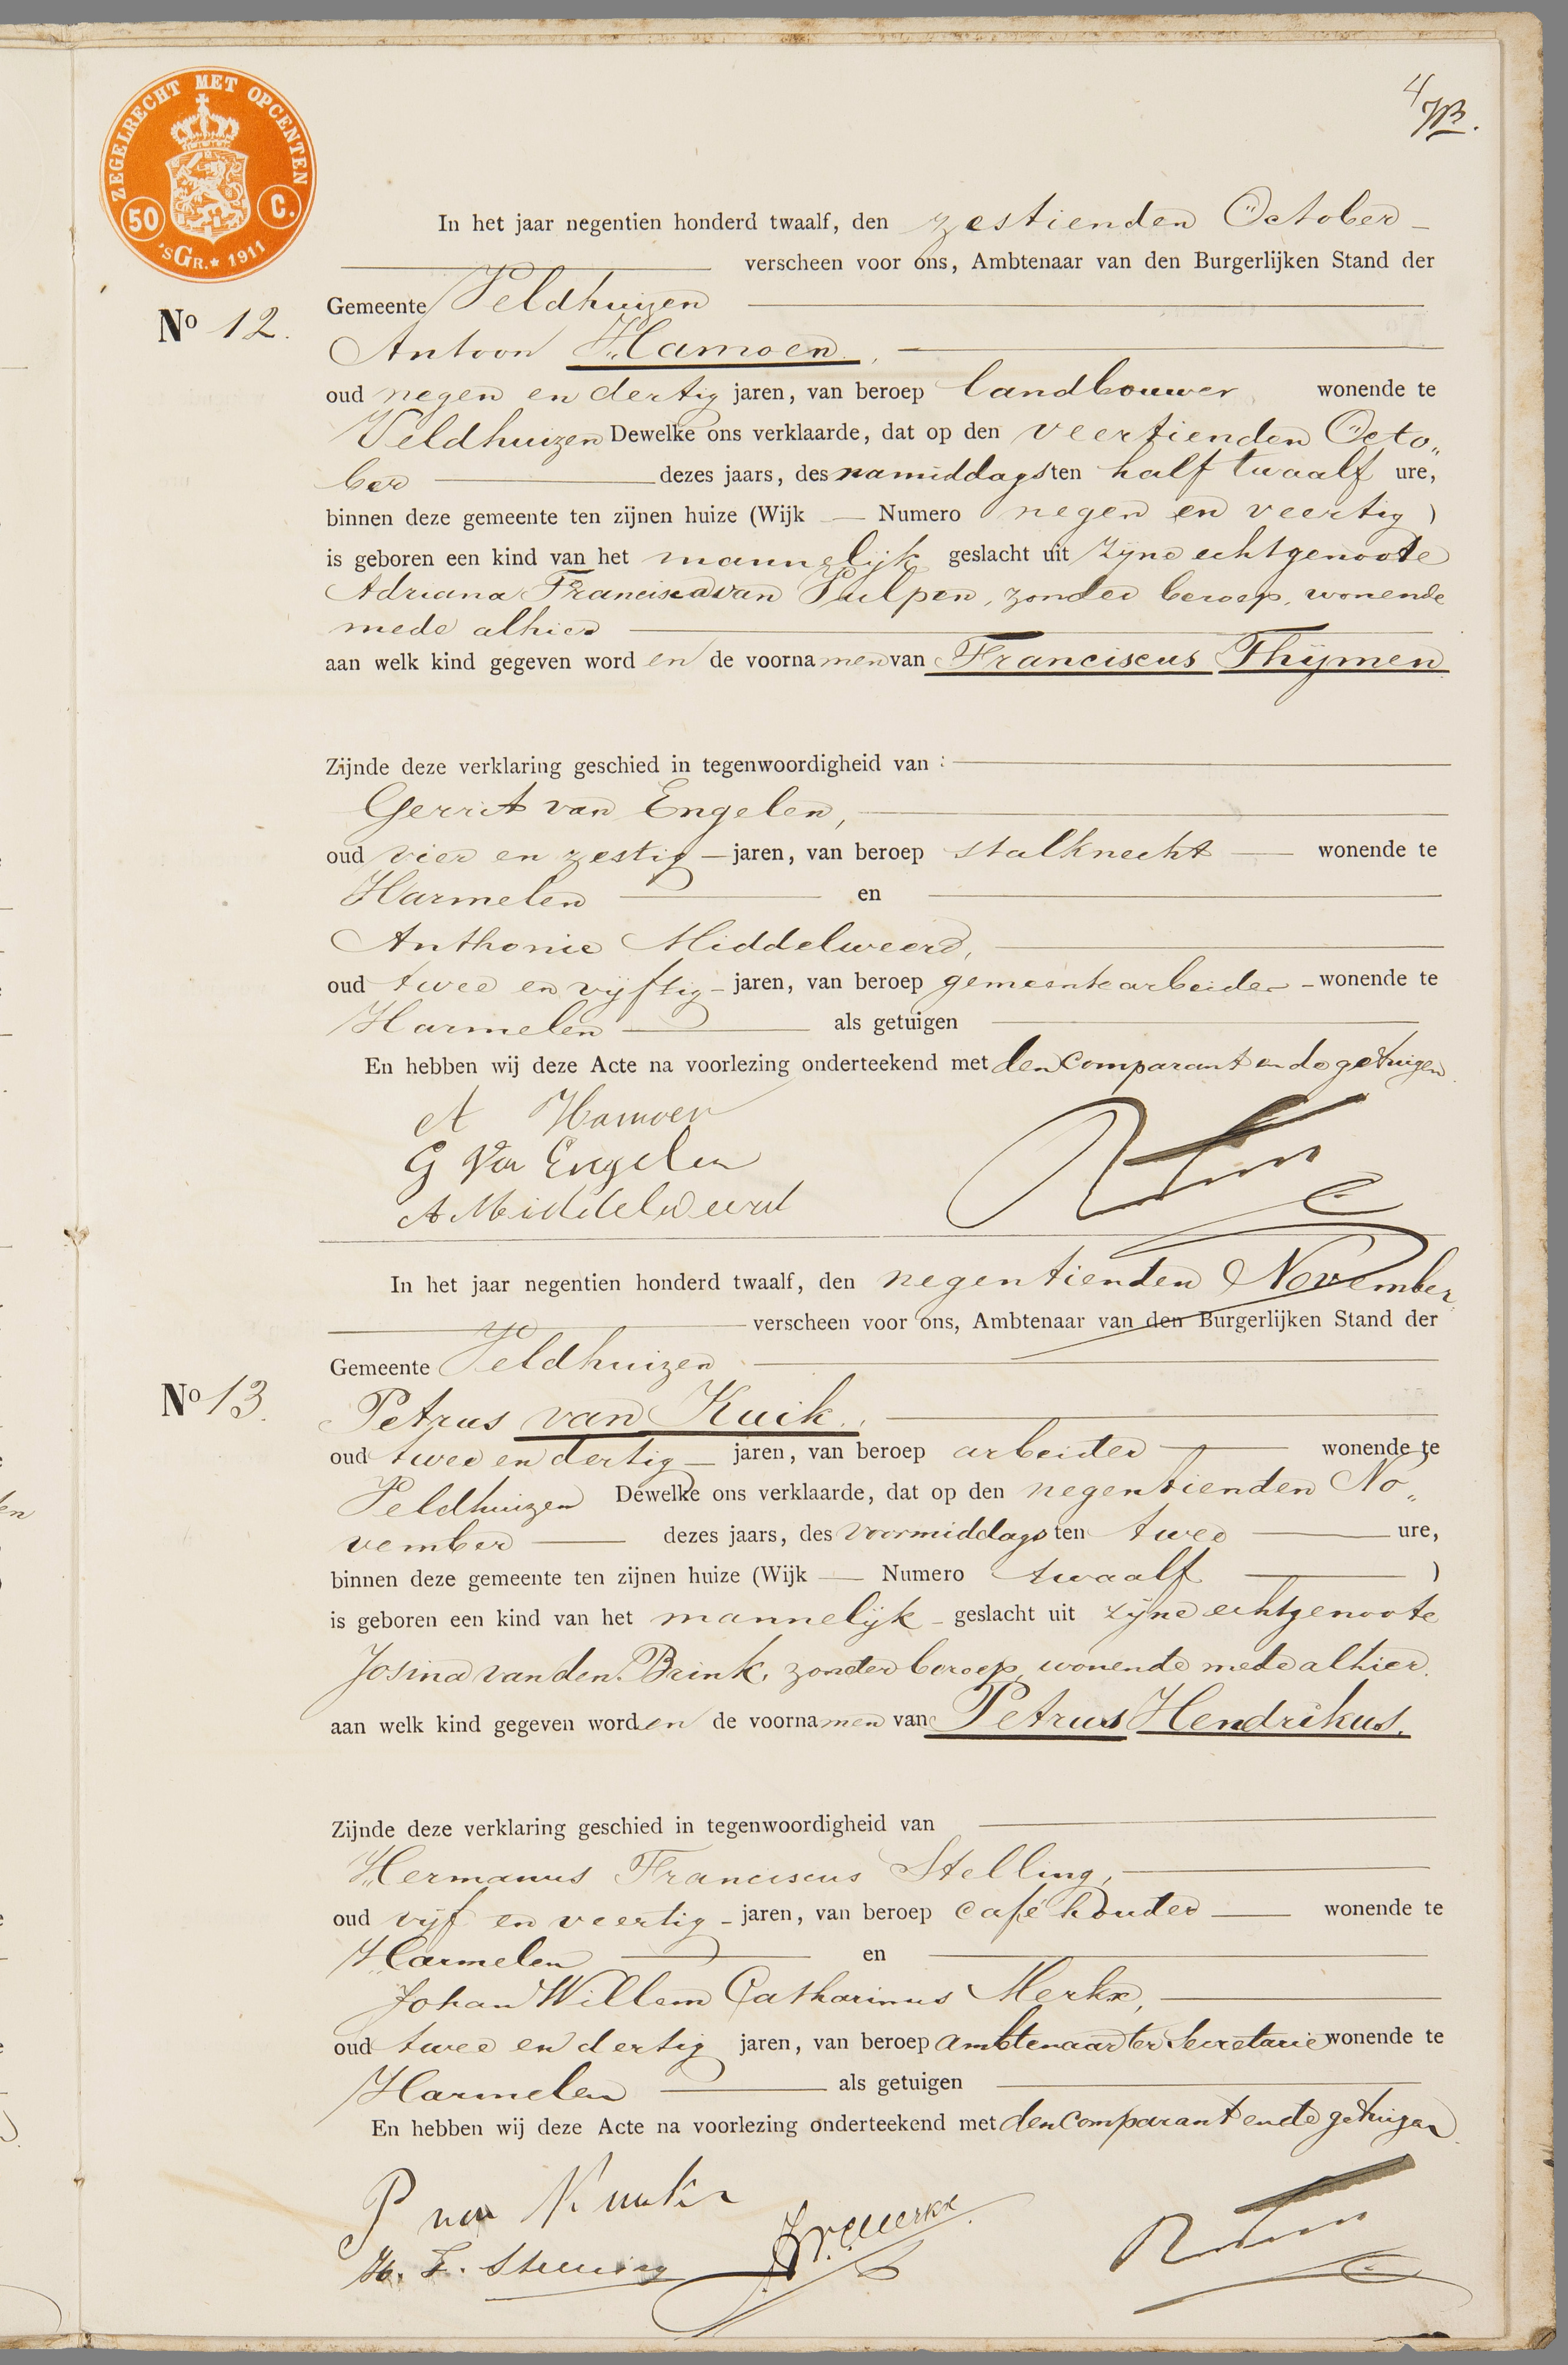 4
ZEGELRECHT MET OPCENTEN
50 C.
'sGR.★ 1911
In het jaar negentien honderd twaalf, den zestienden October
verscheen voor ons, Ambtenaar van den Burgerlijken Stand der
Gemeente Veldhuizen
No 12.
Antoon Hamoen,
oud negen en dertig jaren, van beroep landbouwer, wonende te
Veldhuizen Dewelke ons verklaarde, dat op den veertienden Octo„
ber dezes jaars, des namiddags ten half twaalf ure,
binnen deze gemeente ten zijnen huize (Wijk — Numero negen en veertig )
is geboren een kind van het mannelijk geslacht uit zijne echtgenoote
Adriana Francisca van Pulpen, zonder beroep, wonende
mede alhier
aan welk kind gegeven worden de voornamen van Franciscus Thijmen
Zijnde deze verklaring geschied in tegenwoordigheid van :
Gerrit van Engelen,
oud vier en zestig jaren, van beroep stalknecht wonende te
Harmelen en
Anthonie Middelweerd,
oud twee en vijftig jaren, van beroep gemeentearbeider wonende te
Harmelen als getuigen
En hebben wij deze Acte na voorlezing onderteekend met den comparant en de getuigen.
A Hamoen
G van Engelen
A Middelweerd
In het jaar negentien honderd twaalf, den negentienden November
verscheen voor ons, Ambtenaar van den Burgerlijken Stand der
Gemeente Veldhuizen
No 13.
Petrus van Kuik,
oud twee en dertig jaren, van beroep arbeider wonende te
Veldhuizen Dewelke ons verklaarde, dat op den negentienden No„
vember dezes jaars, des voormiddags ten twee ure,
binnen deze gemeente ten zijnen huize (Wijk — Numero twaalf )
is geboren een kind van het mannelijk geslacht uit zijne echtgenoote
Josina van den Brink, zonder beroep, wonende mede alhier.
aan welk kind gegeven worden de voornamen van Petrus Hendrikus.
Zijnde deze verklaring geschied in tegenwoordigheid van
Hermanus Franciscus Stelling,
oud vijf en veertig jaren, van beroep caféhouder wonende te
Harmelen en
Johan Willem Catharinus Merkx,
oud twee en dertig jaren, van beroep ambtenaar ter Secretarie wonende te
Harmelen als getuigen
En hebben wij deze Acte na voorlezing onderteekend met den comparant en de getuigen.
P van Kuik
H. F. Stelling JWCMerkx